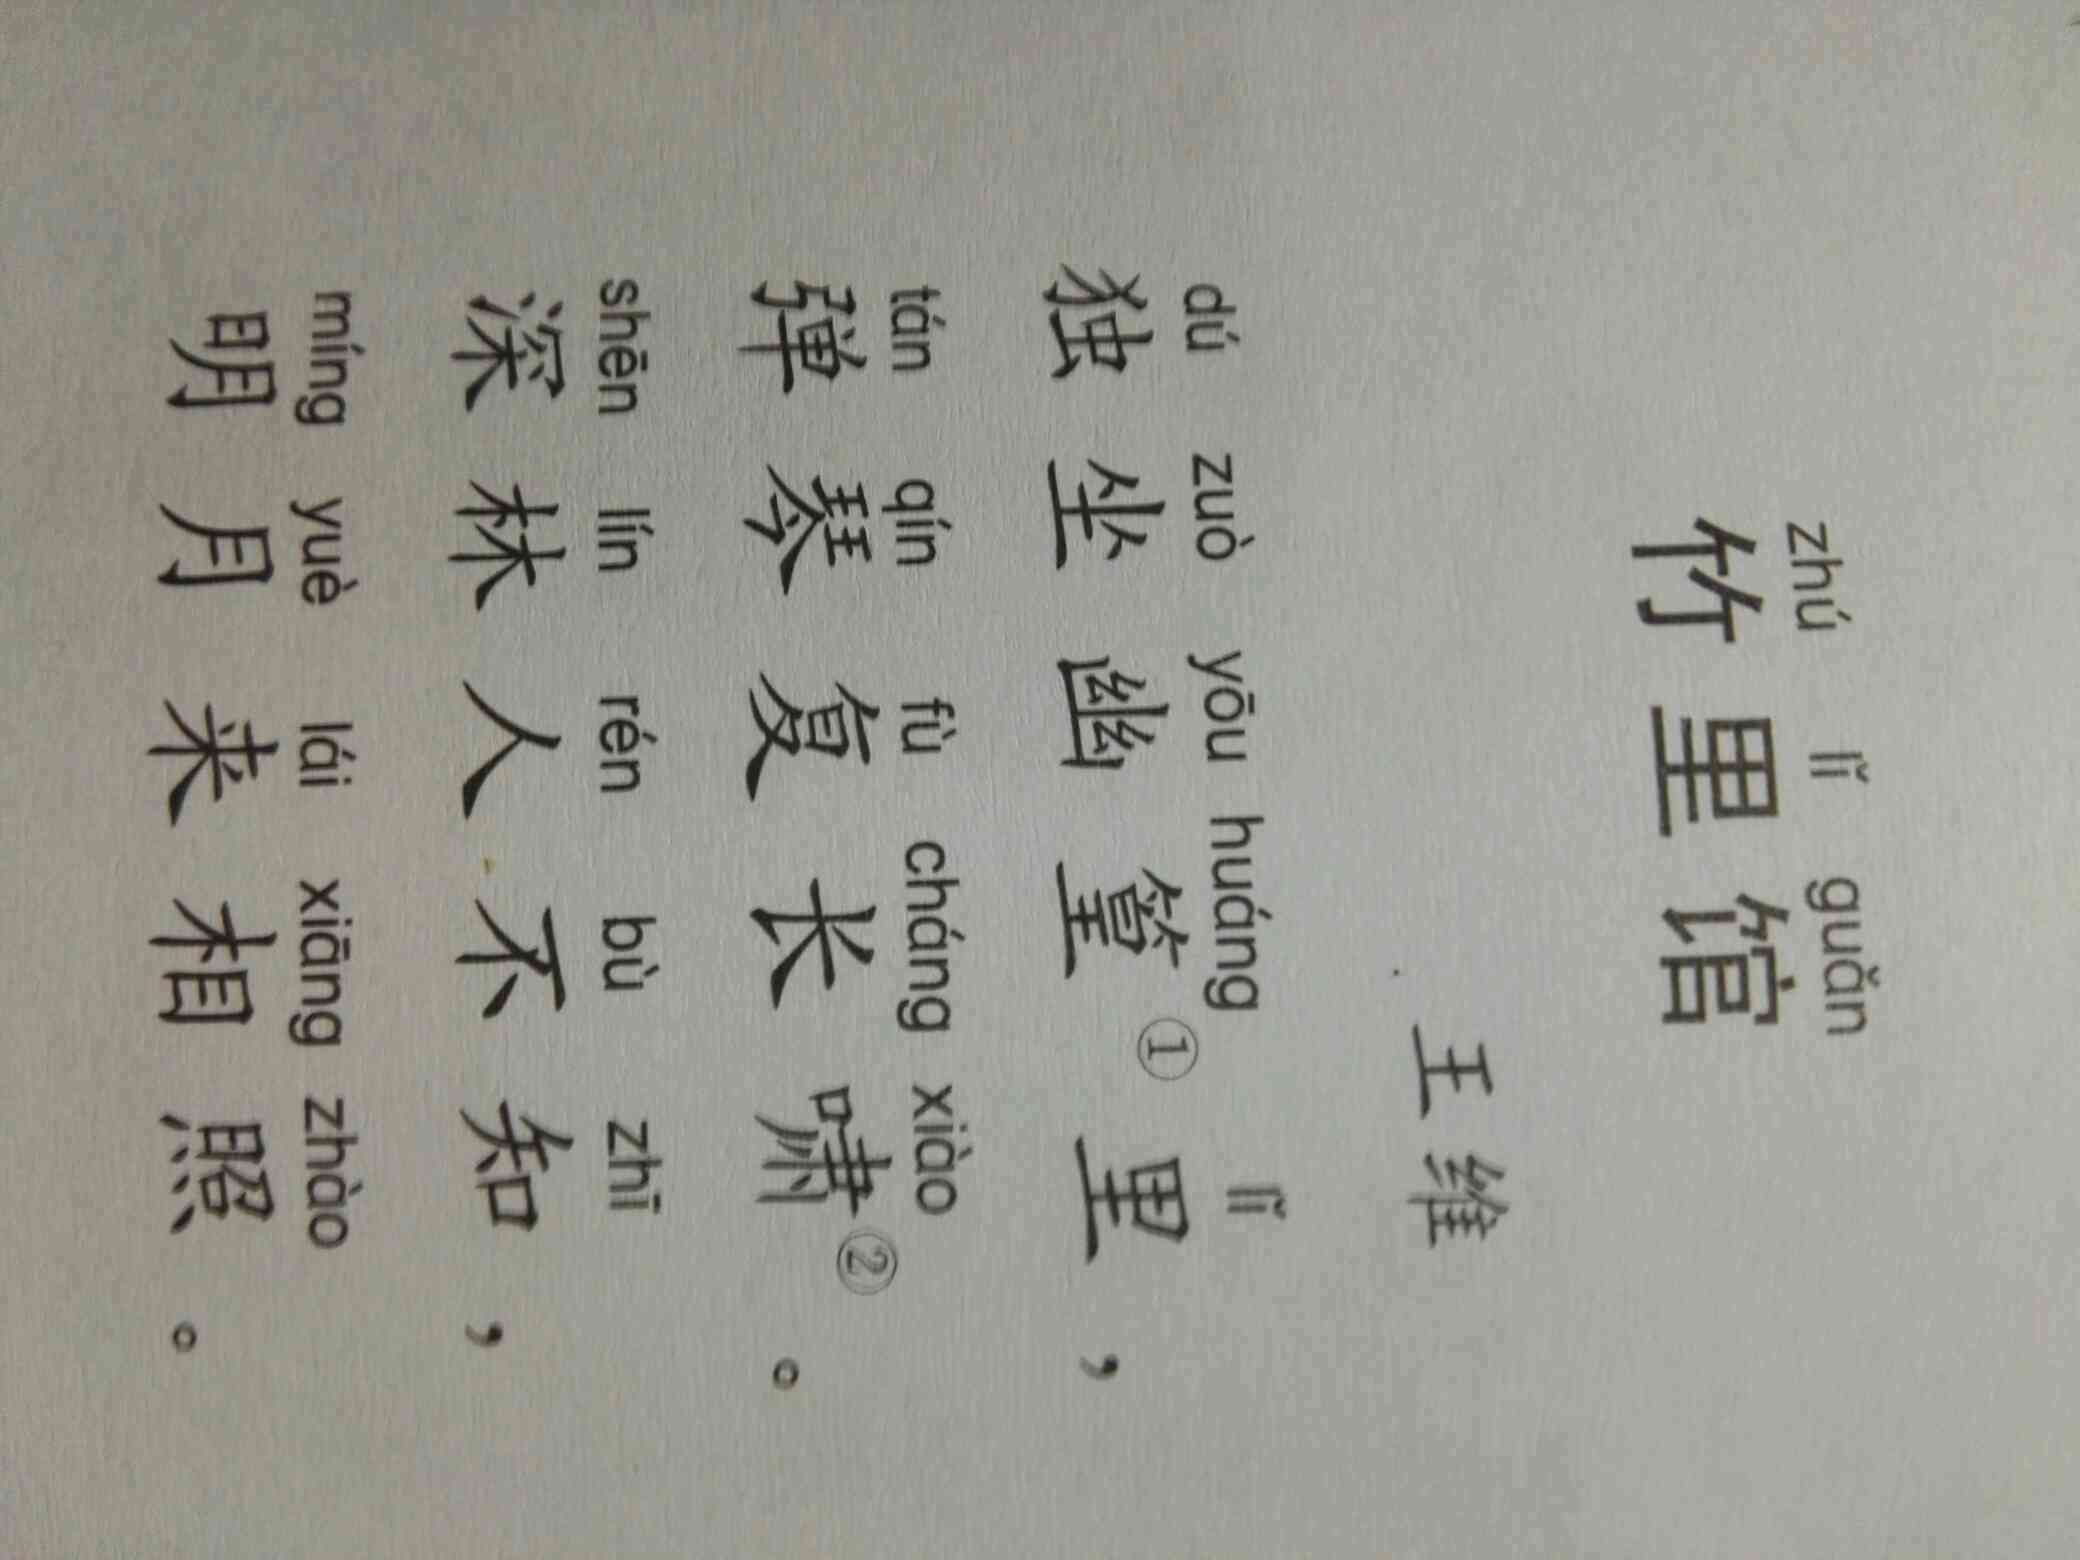 zhú lǐ guǎn
竹里馆
王维
dú zuò yōu huáng lǐ
独坐幽篁①里，
tán qín fù cháng xiào
弹琴复长啸②。
shēn lín rén bù zhī
深林人不知，
míng yuè lái xiāng zhào
明月来相照。